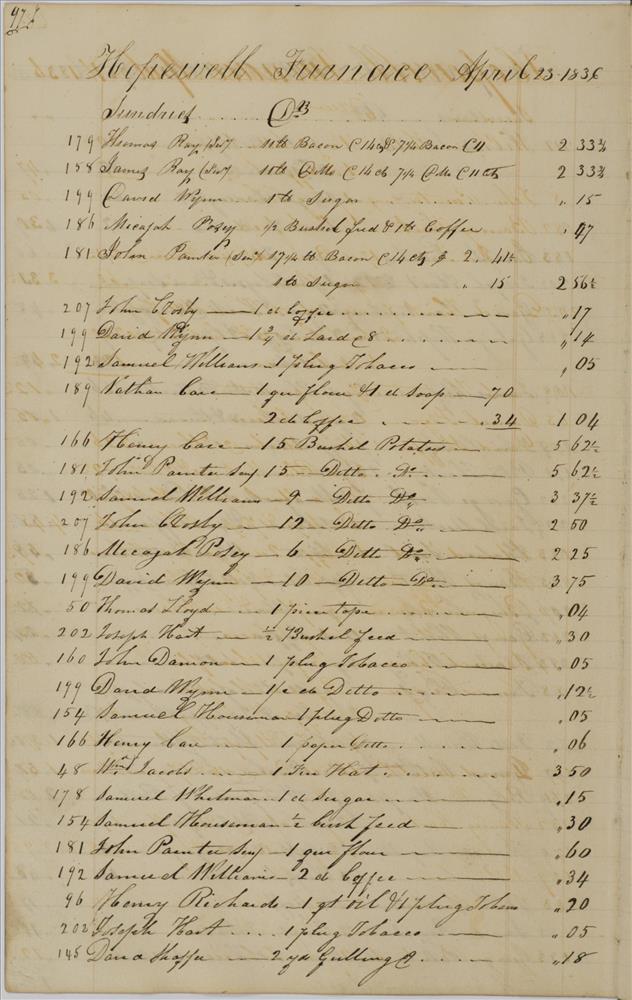 97
Hopewell Furnace April 23 1836
Sundries Drs
179 Thomas Ray 10 lb Bacon @ 14 cts & 7¼ Bacon @ 11 2 33¾
158 James Ray 10 lb Ditto @ 14 cts 7¼ Ditto @ 11 cts 2 33¾
199 David Wynn 1 lb Sugar " 15
186 Micajah Posey ½ Bushel feed & 1 lb Coffee " 47
181 John Painter (Senr) 17¼ lb Bacon @ 14 cts $ 2. 41½
1 lb Sugar " 15 2 56½
207 John Crosby 1 lb Coffee " 17
199 David Wynn 1¾ lb Lard @ 8 " 14
192 Samuel Williams 1 plug Tobacco " 05
189 Nathan Care 1 qur flour & 1 lb Soap 70
2 lb Coffee .34 1 04
166 Henry Care 15 Bushel Potatoes 5 62½
181 John Painter Snr 15 Ditto Do 5 62½
192 Samuel Williams 9 Ditto Do 3 37½
207 John Crosby 12 Ditto Do 2 50
186 Mecajah Posey 6 Ditto Do 2 25
199 David Wynn 10 Ditto Do 3 75
50 Thomas Lloyd 1 piece tape " 04
202 Joseph Hart ½ Bushel feed " 30
160 John Damon 1 plug Tobacco " 05
199 David Wynn 1/2 lb Ditto " 12½
154 Samuel Houseman 1 plug Ditto " 05
166 Henry Care 1 paper Ditto " 06
48 Wm Jacobs 1 Fur Hat 3 50
178 Samuel Whitman 1 lb Sugar " 15
154 Samuel Houseman ½ bush feed " 30
181 John Painter Snr 1 qur flour " 60
192 Samuel Williams 2 lb Coffee " 34
96 Henry Richards 1 qt oil & 1 plug Tobacco " 20
202 Joseph Hart 1 plug Tobacco " 05
145 David Shaffer 2 yds " 18